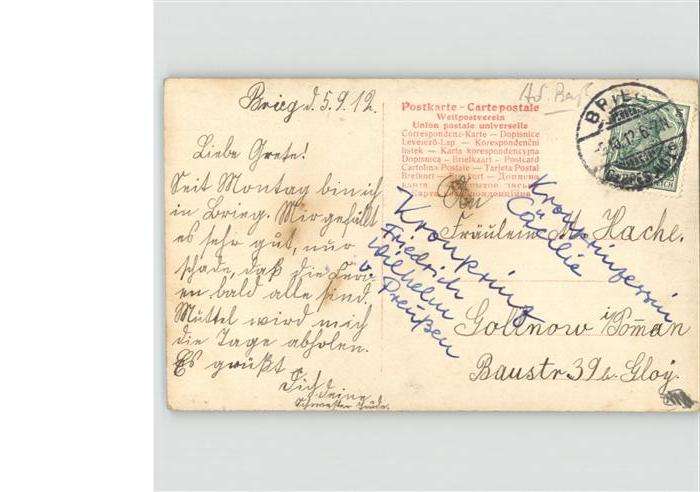 Brieg d. 5.9.12.
Liebe Grete!
Seit Montag bin ich
in Brieg. Mir gefällt
es sehr gut, nur
schade, daß die Feri-
en bald alle sind.
Muttel wird mich
die Tage abholen.
Es grüßt
Dich
Deine
Schwester Trude.
Ad. Bay
Postkarte - Carte postale
Weltpostverein
Union postale universelle
Correspondenz-Karte — Dopisnice
Levelező-Lap — Korespondenční
lístek — Karta korespondencyjna
Dopisnica — Briefkaart — Postcard
Cartolina Postale — Tarjeta Postal
Brefkort —
BRIEG
An
Fräulein M. Hache.
Gollnow i/Poman
Baustr. 39 b. Gloy.
Kronprinz
Friedrich
Wilhelm
v. Preußen
Kronprinzessin
Cäcilie